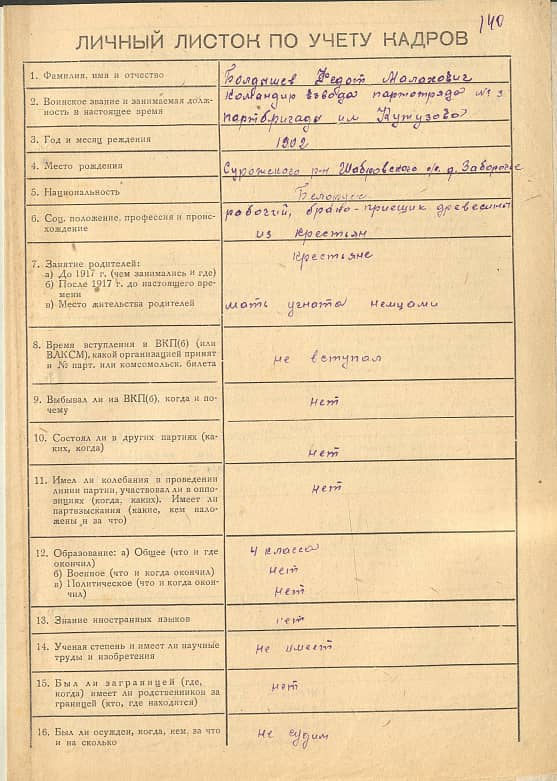 140
ЛИЧНЫЙ ЛИСТОК ПО УЧЕТУ КАДРОВ
1. Фамилия, имя и отчество
Болдышев Федот Малахович
2. Воинское звание и занимаемая долж-
ность в настоящее время
Командир взвода партотряда № 3
партбригады им Кутузова
3. Год и месяц рождения
1902
4. Место рождения
Суражского р-н Шабровского с/с. д. Заборочье
5. Национальность
Белорусс
6. Соц. положение, профессия и проис-
хождение
рабочий, брако-приещик древесины
из крестьян
7. Занятие родителей:
а) До 1917 г. (чем занимались и где)
б) После 1917 г. до настоящего вре-
мени
в) Место жительства родителей
Крестьяне
мать угната немцами
8. Время вступления в ВКП(б) (или
ВЛКСМ), какой организацией принят
и № парт. или комсомольск. билета
не вступал
9. Выбывал ли из ВКП(б), когда и по-
чему
нет
10. Состоял ли в других партиях (ка-
ких, когда)
нет
11. Имел ли колебания в проведении
линии партии, участвовал ли в оппо-
зициях (когда, каких). Имеет ли
партвзыскания (какие, кем нало-
жены и за что)
нет
12. Образование: а) Общее (что и где
окончил)
б) Военное (что и когда окончил)
в) Политическое (что и когда окон-
чил)
4 класса
нет
нет
13. Знание иностранных языков
нет
14. Ученая степень и имеет ли научные
труды и изобретения
не имеет
15. Был ли заграницей (где,
когда) имеет ли родственников за
границей (кто, где находится)
нет
16. Был ли осужден, когда, кем, за что
и на сколько
не судим